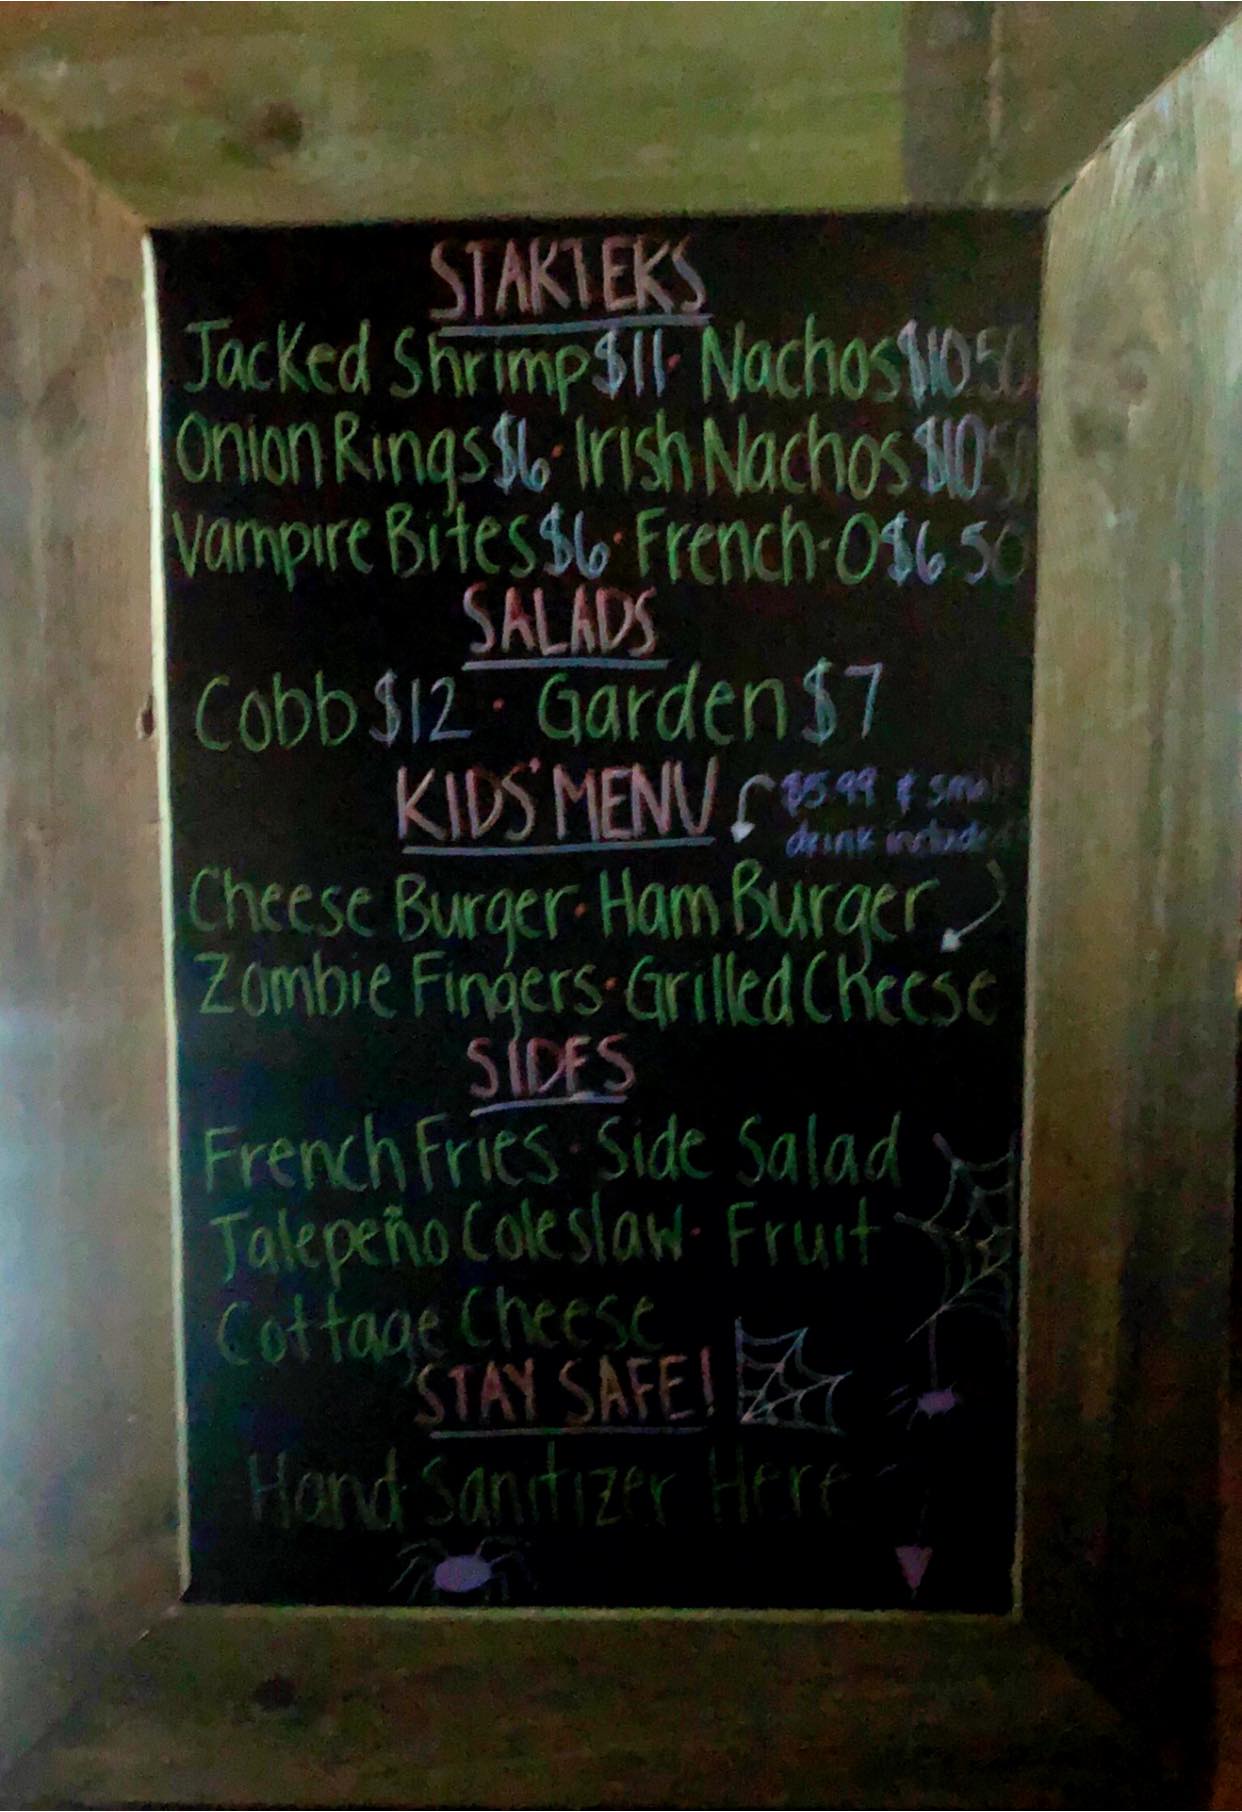 STARTERS
Jacked Shrimp $11 · Nachos $10.50
Onion Rings $6 · Irish Nachos $10.50
Vampire Bites $6 · French-O $6.50
SALADS
Cobb $12 · Garden $7
KIDS' MENU
$5.99 & small
drink included
Cheese Burger · Ham Burger
Zombie Fingers · Grilled Cheese
SIDES
French Fries · Side Salad
Jalepeño Coleslaw · Fruit
Cottage Cheese
STAY SAFE!
Hand Sanitizer Here